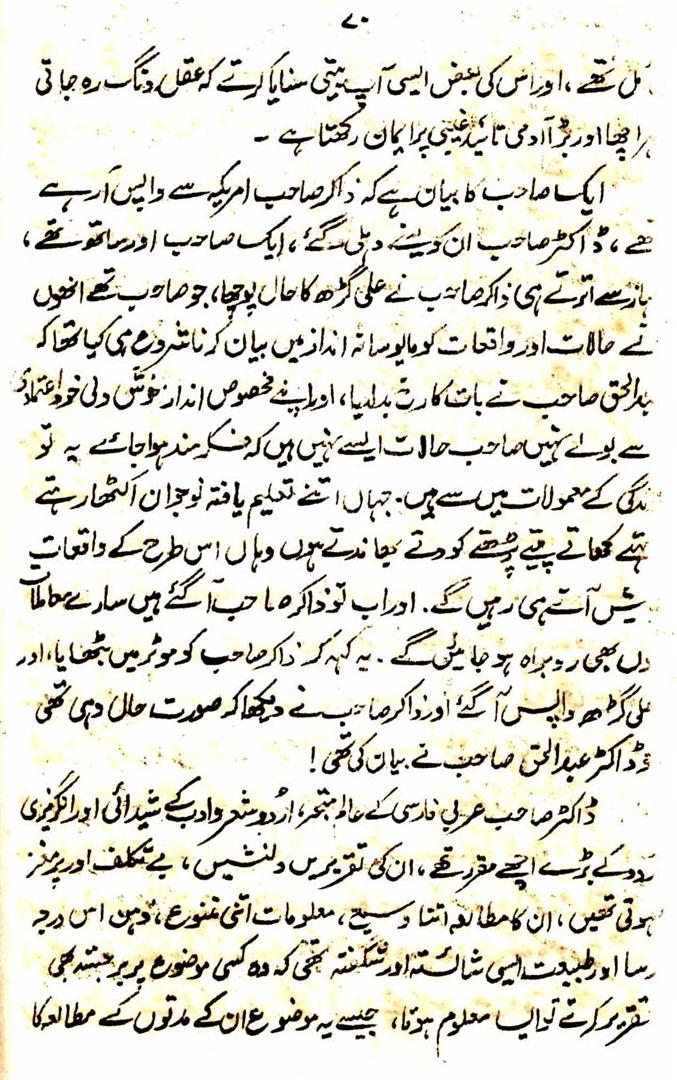 ۷۰
مل تھے، اور اس کی بعض ایسی آپ بیتی سنایا کرتے کہ عقل دنگ رہ جاتی
اچھا اور بڑا آدمی تائید غیبی پر ایمان رکھتا ہے ۔
ایک صاحب کا بیان ہے کہ ذاکر صاحب امریکہ سے واپس آرہے
تھے، ڈاکٹر صاحب ان کو لینے دہلی گئے، ایک صاحب اور ساتھ تھے،
ہاز سے اترتے ہی ذاکر صاحب نے علی گڑھ کا حال پوچھا، جو صاحب تھے انھوں
نے حالات اور واقعات کو مایوسانہ انداز میں بیان کرنا شروع ہی کیا تھا کہ
بدالحق صاحب نے بات کا رخ بدل دیا، اور اپنے مخصوص انداز خوش دلی خود اعتمادی
سے بولے نہیں صاحب حالات ایسے نہیں ہیں کہ فکر مند ہوا جائے یہ تو
ندگی کے معمولات میں سے ہیں۔ جہاں اتنے تعلیم یافتہ نوجوان اکٹھا رہتے
ہتے کھاتے پیتے پڑھتے کودتے پھاندتے ہوں وہاں اس طرح کے واقعات
پیش آتے ہی رہیں گے۔ اور اب تو ذاکر صاحب آ گئے ہیں سارے معاملات
دں بھی روبراہ ہو جائیں گے ۔ یہ کہہ کر ذاکر صاحب کو موٹر میں بٹھایا، اور
علی گڑھ واپس آ گئے اور ذاکر صاحب نے دیکھا کہ صورت حال وہی تھی
جو ڈاکٹر عبدالحق صاحب نے بیان کی تھی!
ڈاکٹر صاحب عربی فارسی کے عالم متبحر، اردو شعر و ادب کے شیدائی اور انگریزی
ردو کے بڑے اچھے مقرر تھے، ان کی تقریریں دلنشیں، بے تکلف اور پر مغز
ہوتی تھیں، ان کا مطالعہ اتنا وسیع، معلومات اتنی متنوع، ذہن اس درجہ
رسا اور طبیعت ایسی شائستہ اور شگفتہ تھی کہ وہ کسی موضوع پر برجستہ بھی
تقریر کرتے تو ایسا معلوم ہوتا، جیسے یہ موضوع ان کے مدتوں کے مطالعہ کا